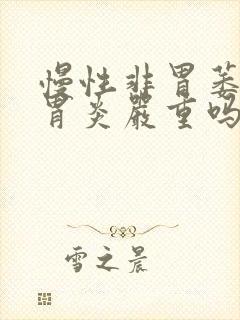 慢性非胃萎
胃炎严重吗
雪之晨